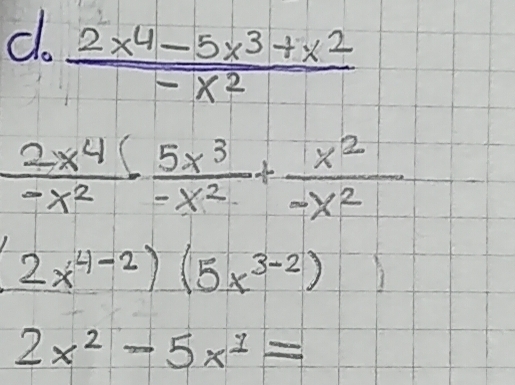 d. 2x⁴ – 5x³ + x²
– x²
2x⁴ ( 5x³ + x²
-x² -x² -x²
(2x⁴⁻²) (5x³⁻²) )
2x² – 5x¹ =